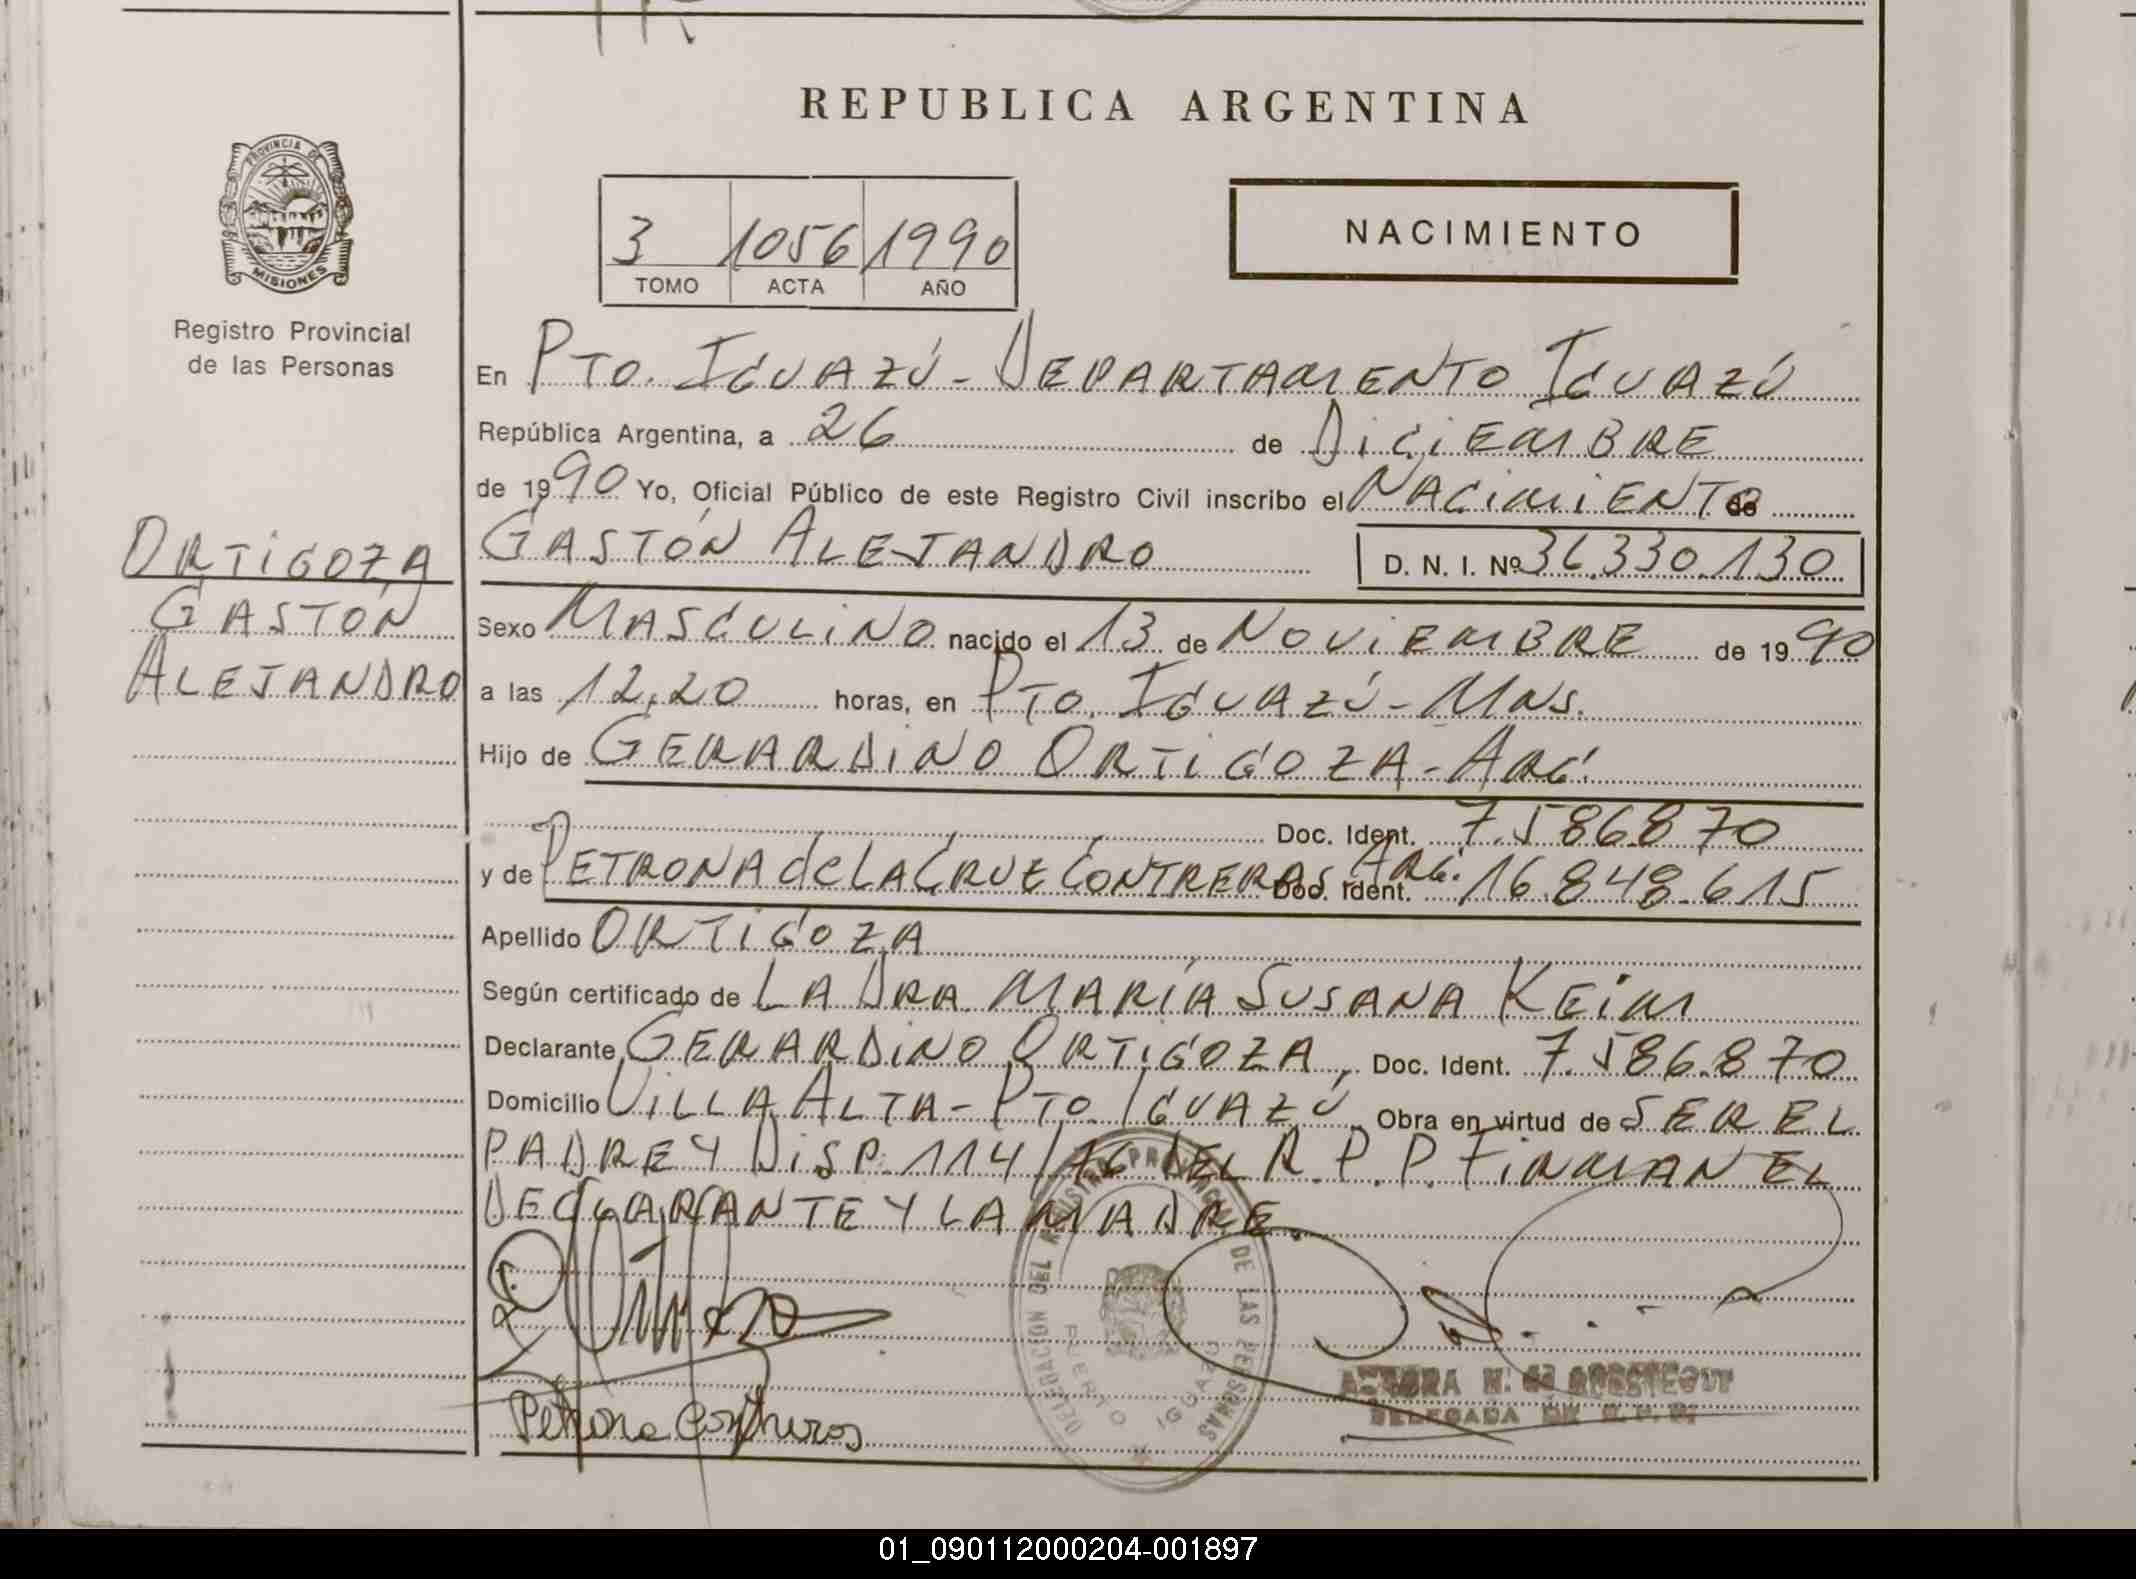 REPUBLICA ARGENTINA
PROVINCIA DE
MISIONES
Registro Provincial
de las Personas
3 1056 1990
TOMO ACTA AÑO
NACIMIENTO
En PTO. IGUAZÚ - DEPARTAMENTO IGUAZÚ
República Argentina, a 26 de DICIEMBRE
de 1990 Yo, Oficial Público de este Registro Civil inscribo el NACIMIENTO de
ORTIGOZA
GASTÓN
ALEJANDRO
GASTÓN ALEJANDRO D. N. I. Nº 36.330.130
Sexo MASCULINO nacido el 13 de NOVIEMBRE de 1990
a las 12,20 horas, en PTO. IGUAZÚ - MNS.
Hijo de GERARDINO ORTIGOZA - ARG.
Doc. Ident. 7.586870
y de PETRONA de LA CRUZ CONTRERAS ARG. Doc. Ident. 16.848.615
Apellido ORTIGOZA
Según certificado de LA DRA. MARÍA SUSANA KEIM
Declarante GERARDINO ORTIGOZA, Doc. Ident. 7.586.870
Domicilio VILLA ALTA - PTO. IGUAZÚ Obra en virtud de SER EL
PADRE Y DISP. 114/76 DEL R.P.P. FIRMAN EL
DECLARANTE Y LA MADRE.
DELEGACION DEL REGISTRO PROVINCIAL DE LAS PERSONAS
PUERTO IGUAZU
DELEGADA
Petrona Contreras
01_090112000204-001897